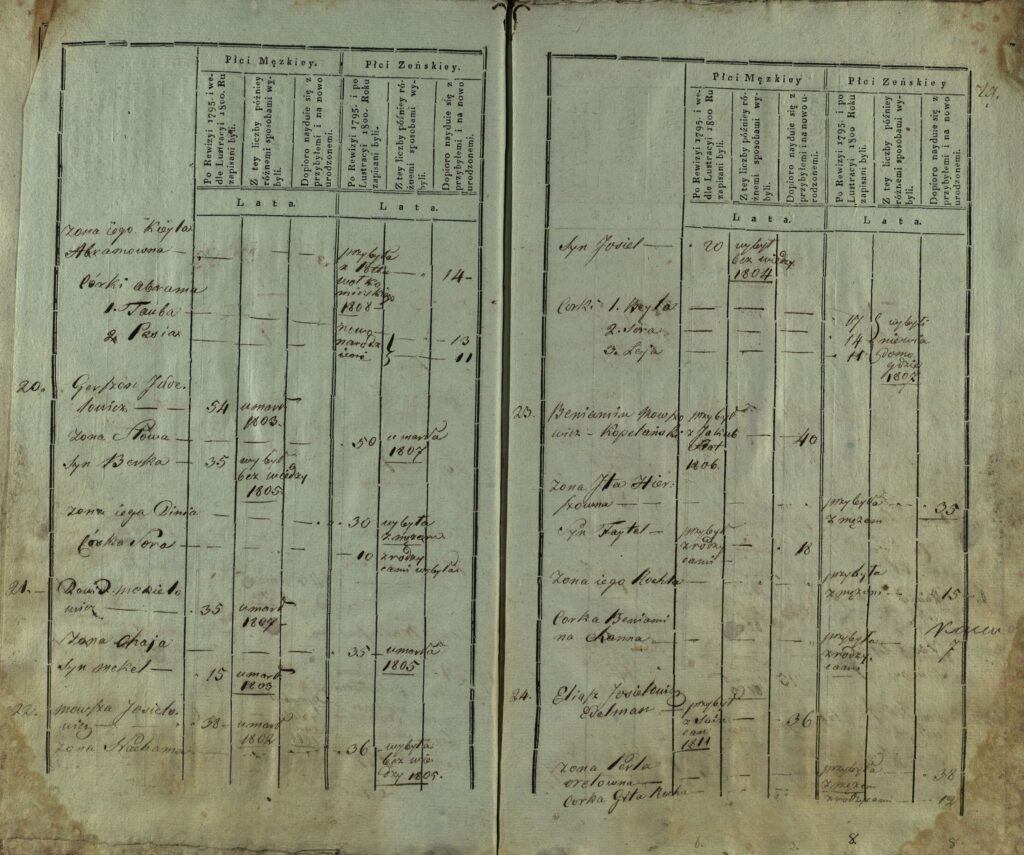 Płci Męzkiey.
Płci Zeńskiey.
Po Rewizyi 1795. i we-
dle Lustracyi 1800. Ru
zapisani byli.
Z tey liczby później
różnemi sposobami wy-
byli.
Dopioro nayduie się z
przybyłemi i na nowo
urodzonemi.
Po Rewizyi 1795. i po
Lustracyi 1800. Roku
zapisani byli.
Z tey liczby później ró-
żnemi sposobami wy-
byli.
Dopioro nayduie się z
przybyłemi i na nowo
urodzonemi.
Lata.
Lata.
Zona iego
Abramowna — przybyła
z
1808 — 14 —
Córki abrama
1. Tauba —
2. — nowo
narodz 13
11
20. Gerszon
towicz — 54 umarł
1803.
Zona Słowa 50 umarła
1807
Syn Berka — 35 wybył
bez wiedzy
1805
Zona iego Dinia — 30 wybyła
z mężem
Córka Sora — 10 z rodzy
cami wybyła
21. — Dawid
wicz — 35 umarł
1807
Zona Chaja — 35 umarła
1805
Syn Mekel — 15 umarł
1803
22. Mowsza Josielo-
wicz — 38 — umarł
1802
Zona Nachama 36 wybyła
bez wie
dzy 1805.
Płci Męzkiey
Płci Zeńskiey
Po Rewizyi 1795. i we-
dle Lustracyi 1800 Ru
zapisani byli.
Z tey liczby później
różnemi sposobami wy-
byli.
Dopioro nayduie się z
przybyłemi i na nowo u-
rodzonemi.
Po Rewizyi 1795. i po
Lustracyi 1800 Roku
zapisani byli.
Z tey liczby później
różnemi sposobami wy-
byli.
Dopioro nayduie się z
przybyłemi i na nowo
urodzonemi.
Lata.
Lata.
Syn Josiel — 20 wybył
bez wiedzy
1804
Corki 1. Beyla — 17 wybyli
2. Sora — 14
3. Leja — 11
1802
23. Beniamin Mowszo
wicz — Kopelański przybył
z
1806. — 40
Zona Ita Hier-
szowna — przybyła
z mężem 35
Syn Faytel — przybył
z rodzy
cami — 18
Zona iego — przybyła
z mężem — 15
Corka Beniami
na Hanna — przybyła
z rodzy
cami 7
24. Eliasz Josielowicz
Edelman — przybył
1811 — 36
Zona Perla
— przybyła
z mężem 38
Corka Gita — z rodzycami — 12
8
8